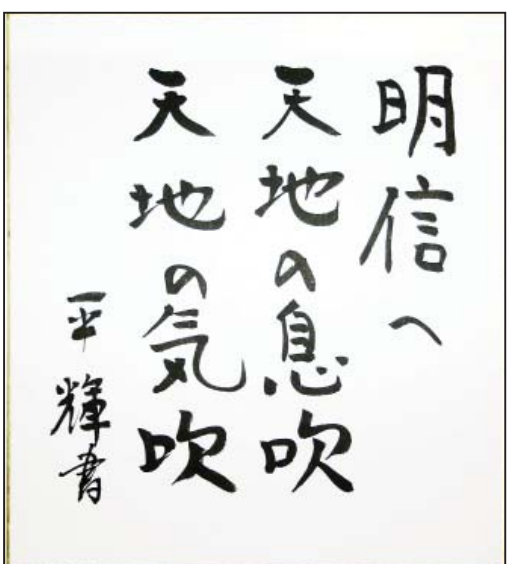 明信へ
天地の息吹
天地の気吹
一平輝書